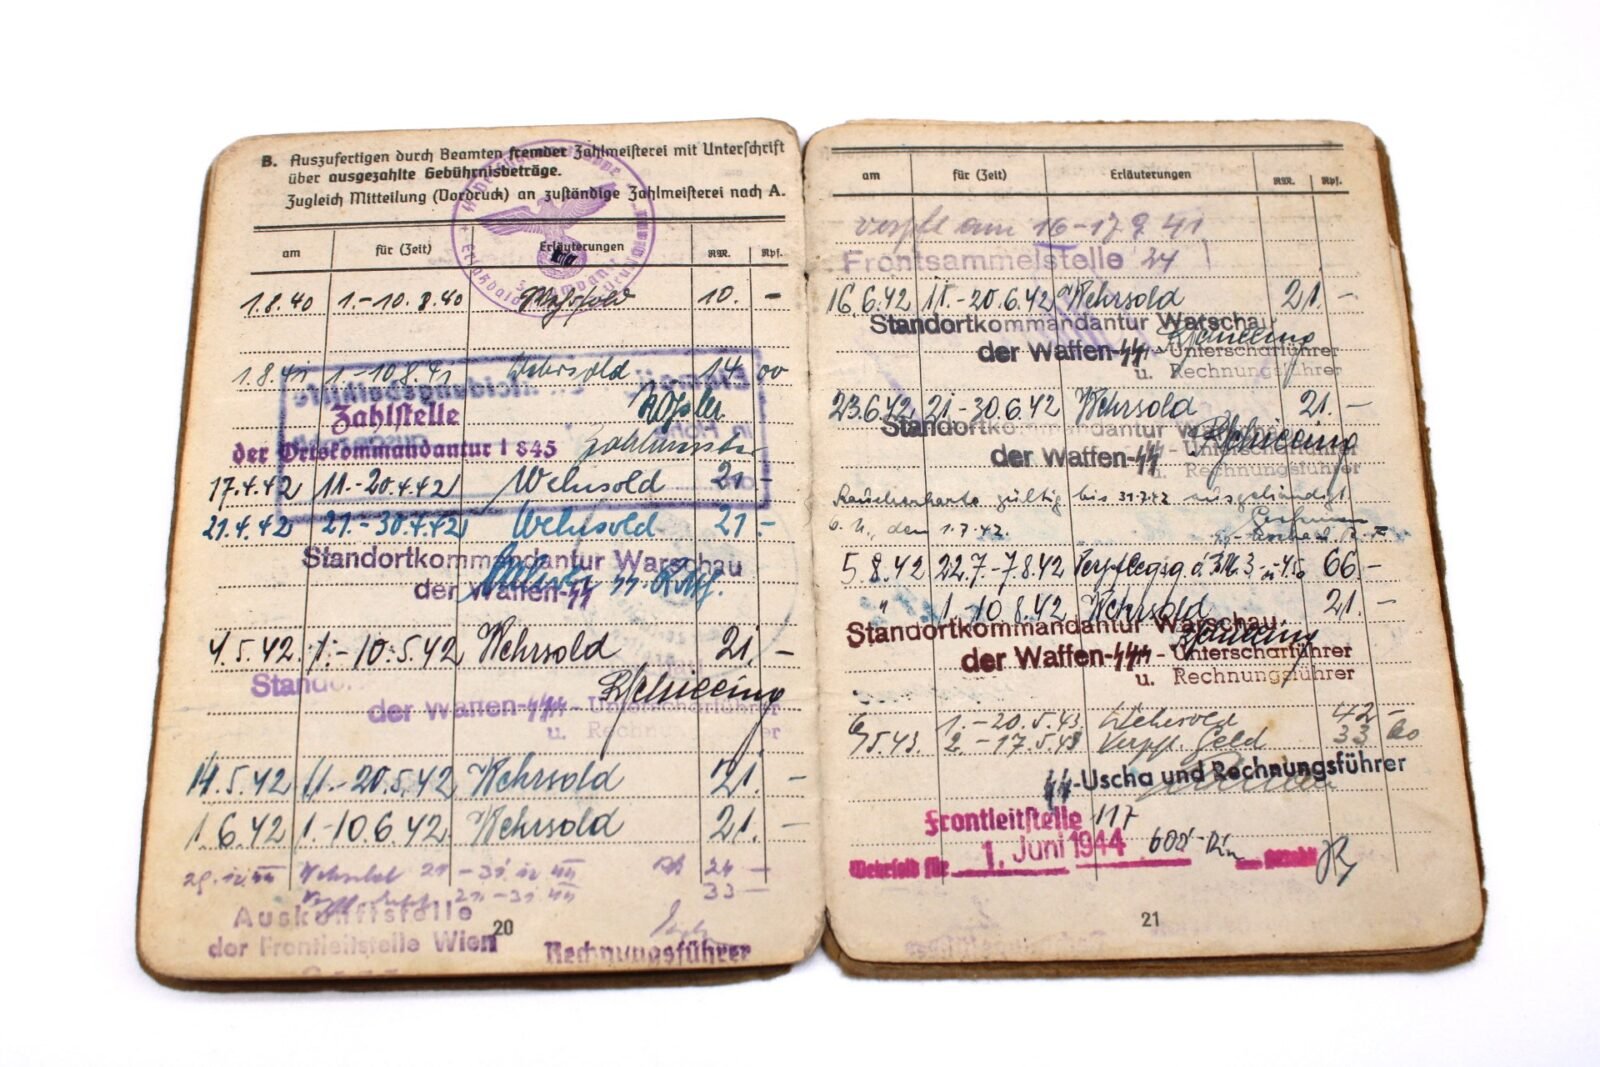 B. Auszufertigen durch Beamten fremder Zahlmeisterei mit Unterschrift
über ausgezahlte Gebührnisbeträge.
Zugleich Mitteilung (Vordruck) an zuständige Zahlmeisterei nach A.
am für (Zeit) Erläuterungen RM. Rpf.
1.8.40 1.-10.8.40 Wehrsold 10. -
1.8.41 1.-10.8.41 Wehrsold 14 00
Zahlstelle
der Ortskommandantur I 845
17.4.42 11.-20.4.42 Wehrsold 21 -
21.4.42 21.-30.4.42 Wehrsold 21 -
Standortkommandantur Warschau
der Waffen-SS
4.5.42. 1.-10.5.42 Wehrsold 21. -
Stando
der Waffen-SS - Unterscharführer
u. Rechn er
14.5.42 11.-20.5.42 Wehrsold 21. -
1.6.42 1.-10.6.42. Wehrsold 21. -
Wehrsold 21 -31 24 -
33 -
Auskunftstelle
der Frontleitstelle Wien
Rechnungsführer
20
am für (Zeit) Erläuterungen RM. Rpf.
verpfl am 16-17 9 41
Frontsammelstelle 24
16.6.42 11.-20.6.42 Wehrsold 21. -
Standortkommandantur Warschau
der Waffen-SS - Unterscharführer
u. Rechnungsführer
23.6.42. 21.-30.6.42 Wehrsold 21. -
Standortkommandantur Warschau
der Waffen-SS - Unterscharführer
u. Rechnungsführer
Raucherkarte gültig bis 31.7.42 ausgehändigt.
den 1.7.42.
5.8.42 22.7.-7.8.42 66.-
" 1.-10.8.42 Wehrsold 21. -
Standortkommandantur Warschau
der Waffen-SS - Unterscharführer
u. Rechnungsführer
5.43. 1.-20.5.43. Wehrsold 42 -
2.-17.5.43 Verpfl. Geld 33 60
SS-Uscha und Rechnungsführer
Frontleitstelle 117
Wehrsold für 1. Juni 1944 600 - Din gezahlt
21